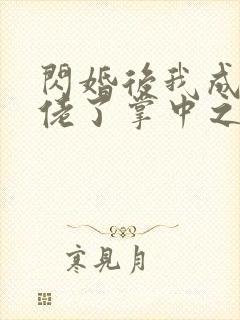 閃婚後我成
佬了掌中之
寒見月